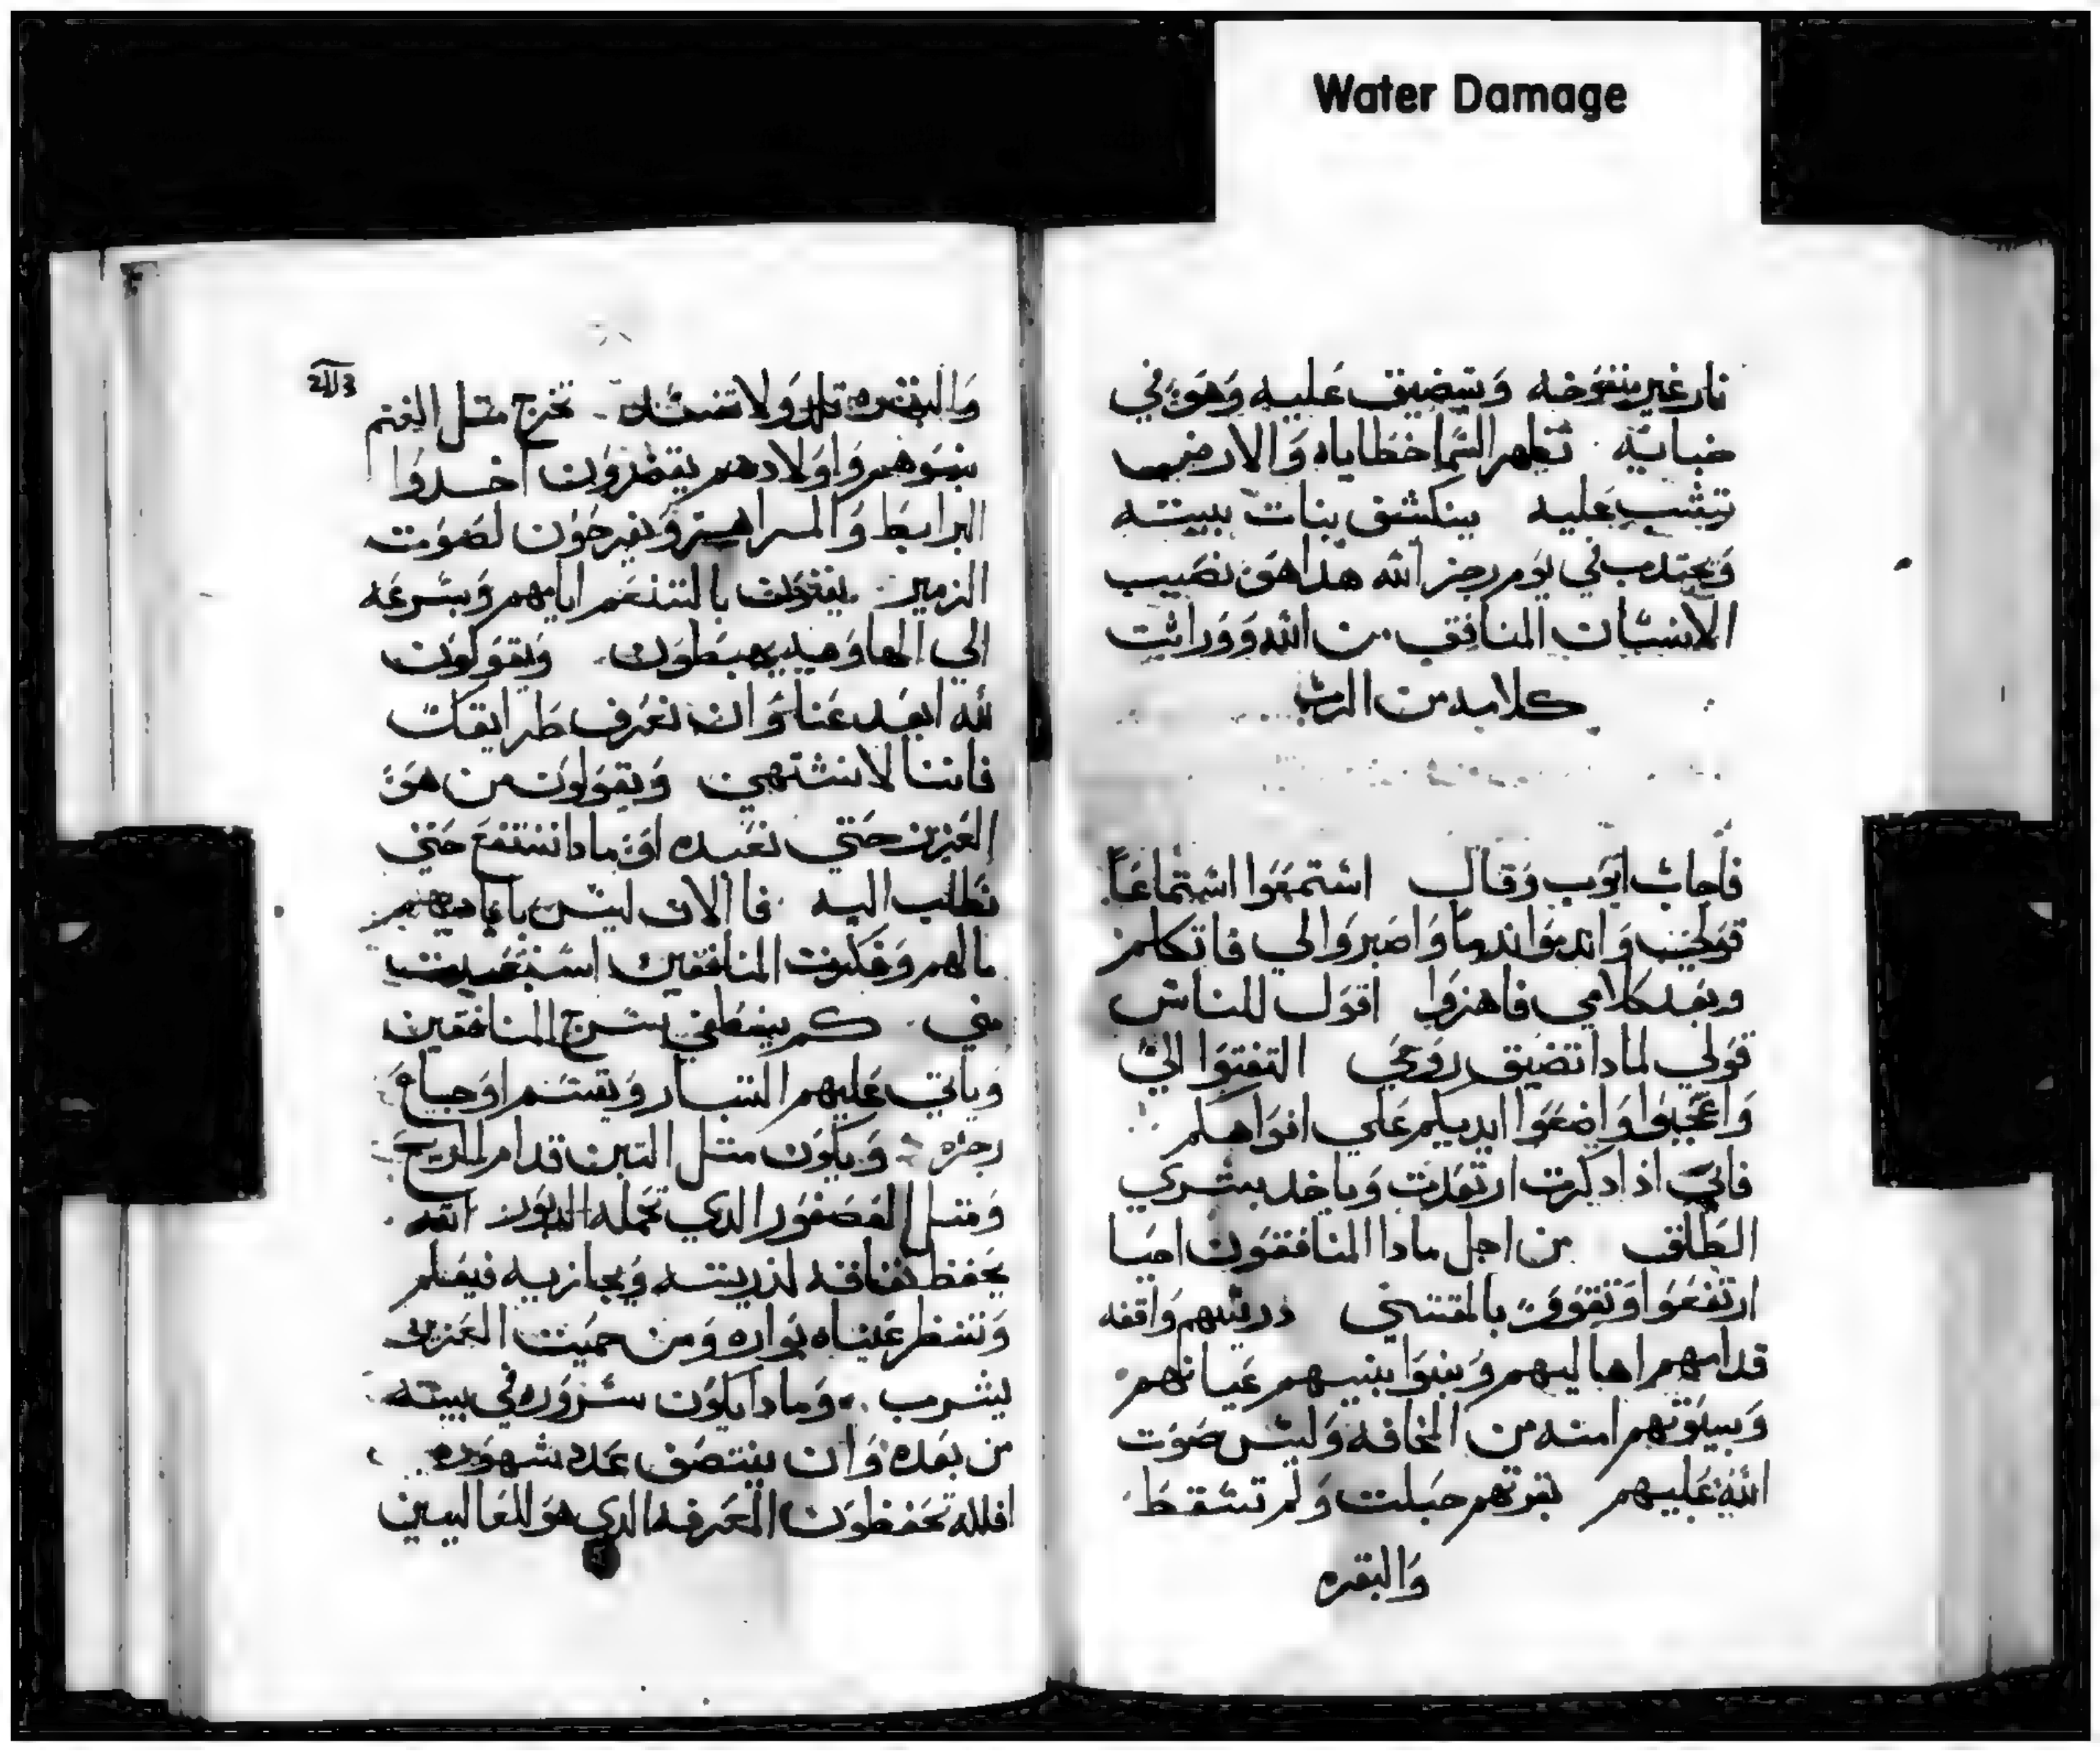 Water Damage
نار غير منفوخه وتضيق عليه وهو في
خبايته تظهر السما خطاياه والارض
تثب عليه ينكشف بنات بيته
ويجتدب في يوم رجز الله هذا هو نصيب
الانسان المنافق من الله ووراثت
كلامه من الرب
فاجاب ايوب وقال استمعوا استماعًا
قولي واندموا ندما واصبروا لي فاتكلم
وبعد كلامي فاهزوا اقول للناس
قولي لمادا تضيق روحي التفتوا الي
واعجبوا واضعوا ايديكم علي افواهكم
فاني اذا دكرت ارتعدت وياخد بشري
الطلق من اجل مادا المنافقون احيا
ارتفعوا وتقووا بالمقتني دريتهم واقفه
قدامهم اهاليهم وبنوا بنيهم عيانهم
وبيوتهم امنه من المخافه وليس صوت
الله عليهم بقرتهم حبلت ولم تسقط
والبقره
والبقره تلد ولا تخرج متل الغنم
بنوهم واولادهم اخدوا
البرابط والمزاهر ويفرحون لصوت
الزمير بالتنعم ايامهم وبسرعه
الي الهاويه يهبطون ويقولون
لله ابعد عنا وان نعرف طرايقك
فاننا لا نشتهي ويقولون من هو
العزيز حتي نعبده او مادا ننتفع حتي
نطلب اليه فالان ليس باياديهم
مالهم وفكرت المنافقين استبعدت
مني كم ينطفي سرج المنافقين
وياتي عليهم التبار وتقسم اوجاع
رجزه ويكون متل التبن قدام الريح
ومتل العصفور الدي تحمله الله
يحفظ لدريته ويجازيه فيعلم
وتنظر عيناه بواره ومن حميت العزيز
يشرب ومادا يكون سروره في بيته
من بعده وان ينتصف عدد شهوره
افلله تحفظون المعرفه الدي هو للعاليين